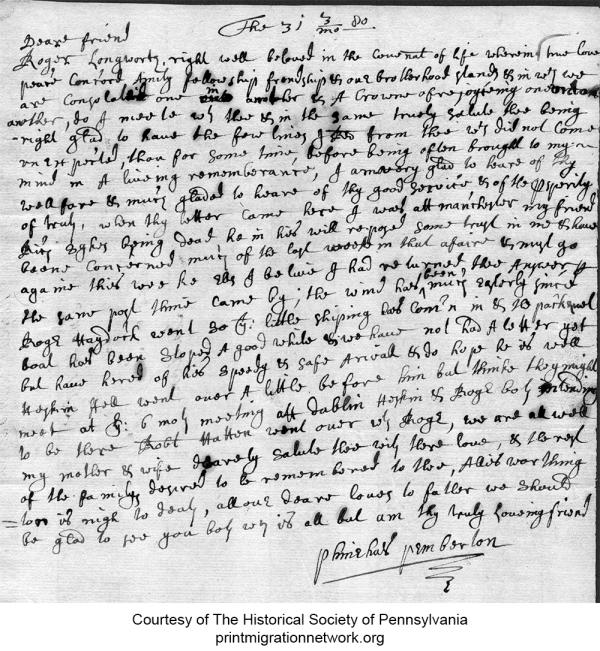 The 31 3/mo 80
Deare friend
Roger Longworth, right well beloved in the Covenat of life wherein true love
peace Concord Amity fellowship frendship & our brotherhood stands & in wch we
are Consolated one in another & A Crowne of rejoyceing one
another, do I meete wth thee & in the same truely salute thee being
right glad to have the few lines from thee wch did not come
unexpected, thou for some time before being often brought to my
mind in A liveing remembrance, I am very glad to heare of thy
wellfare & much glader to heare of thy good service & of the psperity
of truth, when thy letter came here I was att manchester my friend
being dead he in his will reposed some trust in me & have
beene Concerned much of the last weeke in that afaire & must go
againe this weeke els I belive I had returned thee Answer
the same post thine came by; the wind has been much easterly since
Roge Haydock went so litle shiping has com'n in & the packquet
boat hath been stoped A good while & we have not had A letter yet
but have hered of his speedy & safe Arivall & do hope he is well
Heskin Fell went over A litle before him but thinke they might
meet at 6 mo meeting att dablin Heskin & Roge both intending
to be there Robt Hatton went over wth Roge, we are all well
my mother & wife dearely salute thee with there love, & the rest
of the family desired to be remembered to thee, Alis worthing
ton is nigh to death, all our deare loves to father we should
be glad to see you both wth us all but am thy truly loveing friend
phinehas pemberton
Courtesy of The Historical Society of Pennsylvania
printmigrationnetwork.org